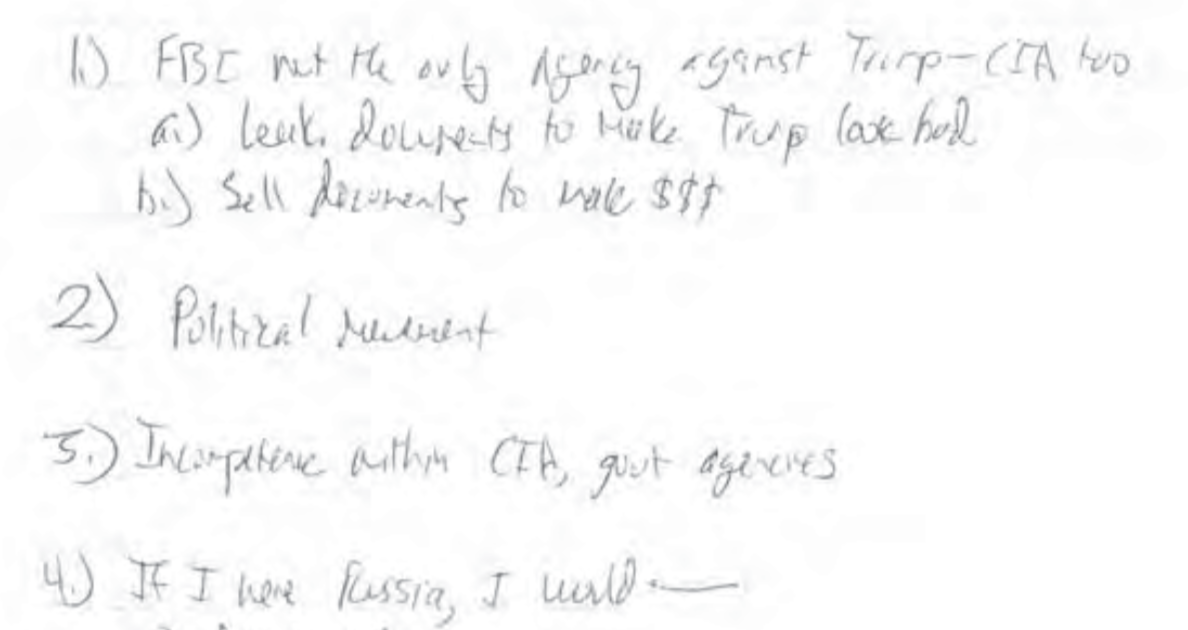 1.) FBI not the only Agency against Trump - CIA too
a.) leak documents to make Trump look bad
b.) Sell documents to make $$$
2) Political
3.) Incompetence within CIA, govt agencies
4.) If I were Russia, I would